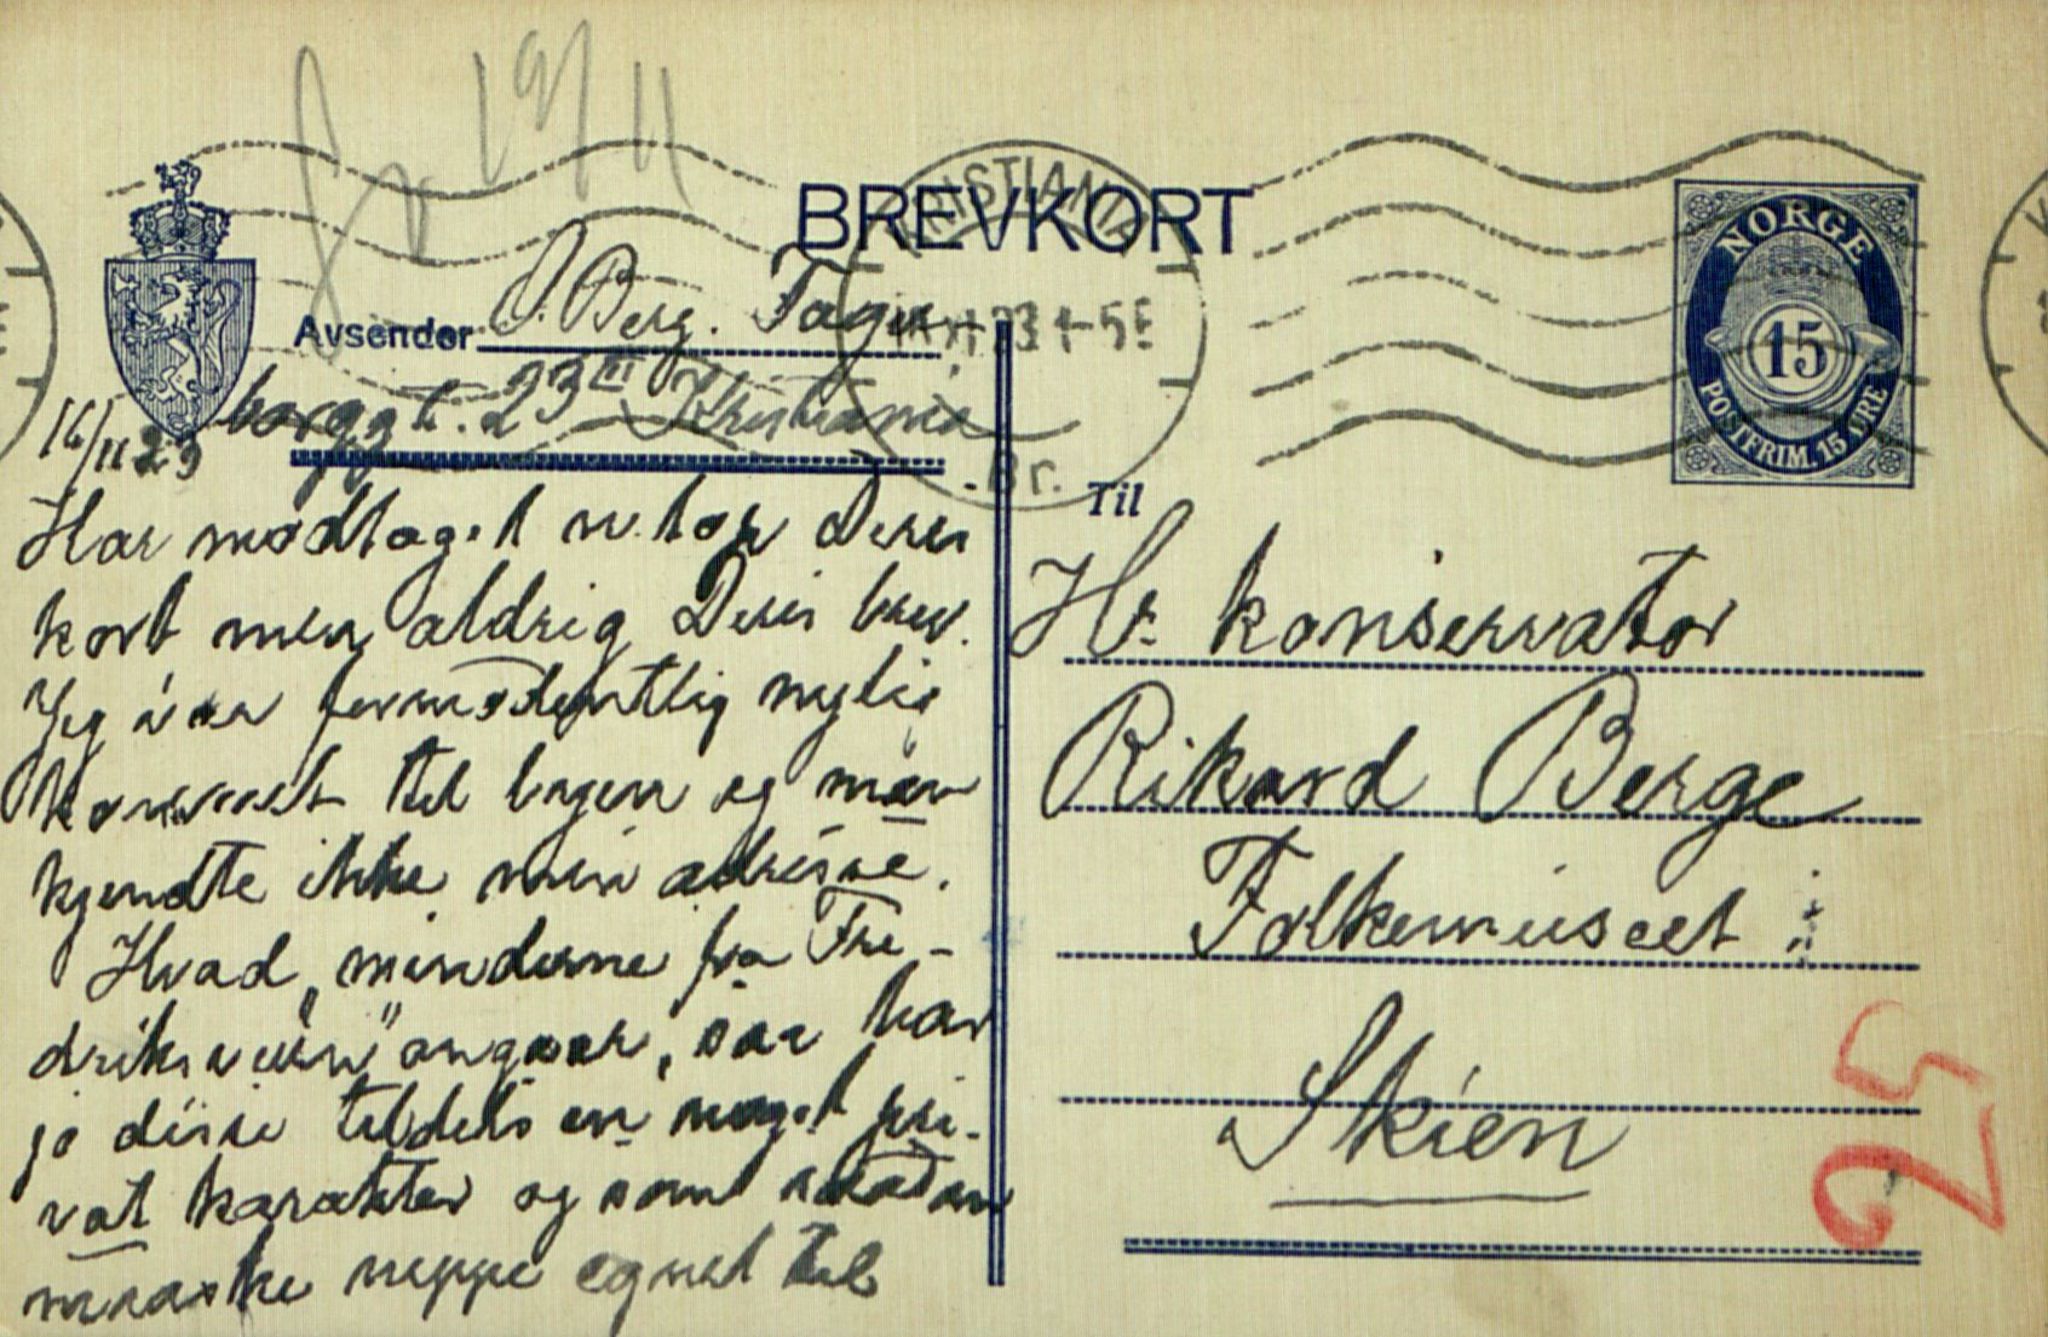 BREVKORT
KRISTIANIA
23 4-5 E
Br.
NORGE
15
POSTFRIM. 15 ØRE
Avsender S. Berg. Fager
borggt. 23 III Kristiania
16/11 23
Har modtaget netop Deres
kort men aldrig Deres brev.
Jeg var formodentlig nylig
kommet til byen og man
kjendte ikke min adresse.
Hvad "minderne fra Fre-
driksvern" angaar, saa har
jo disse tildels en meget pri-
vat karakter og som saadan
maaske neppe egnet til
Til
Hr. konservator
Rikard Berge
Folkemuseet i
Skien
25